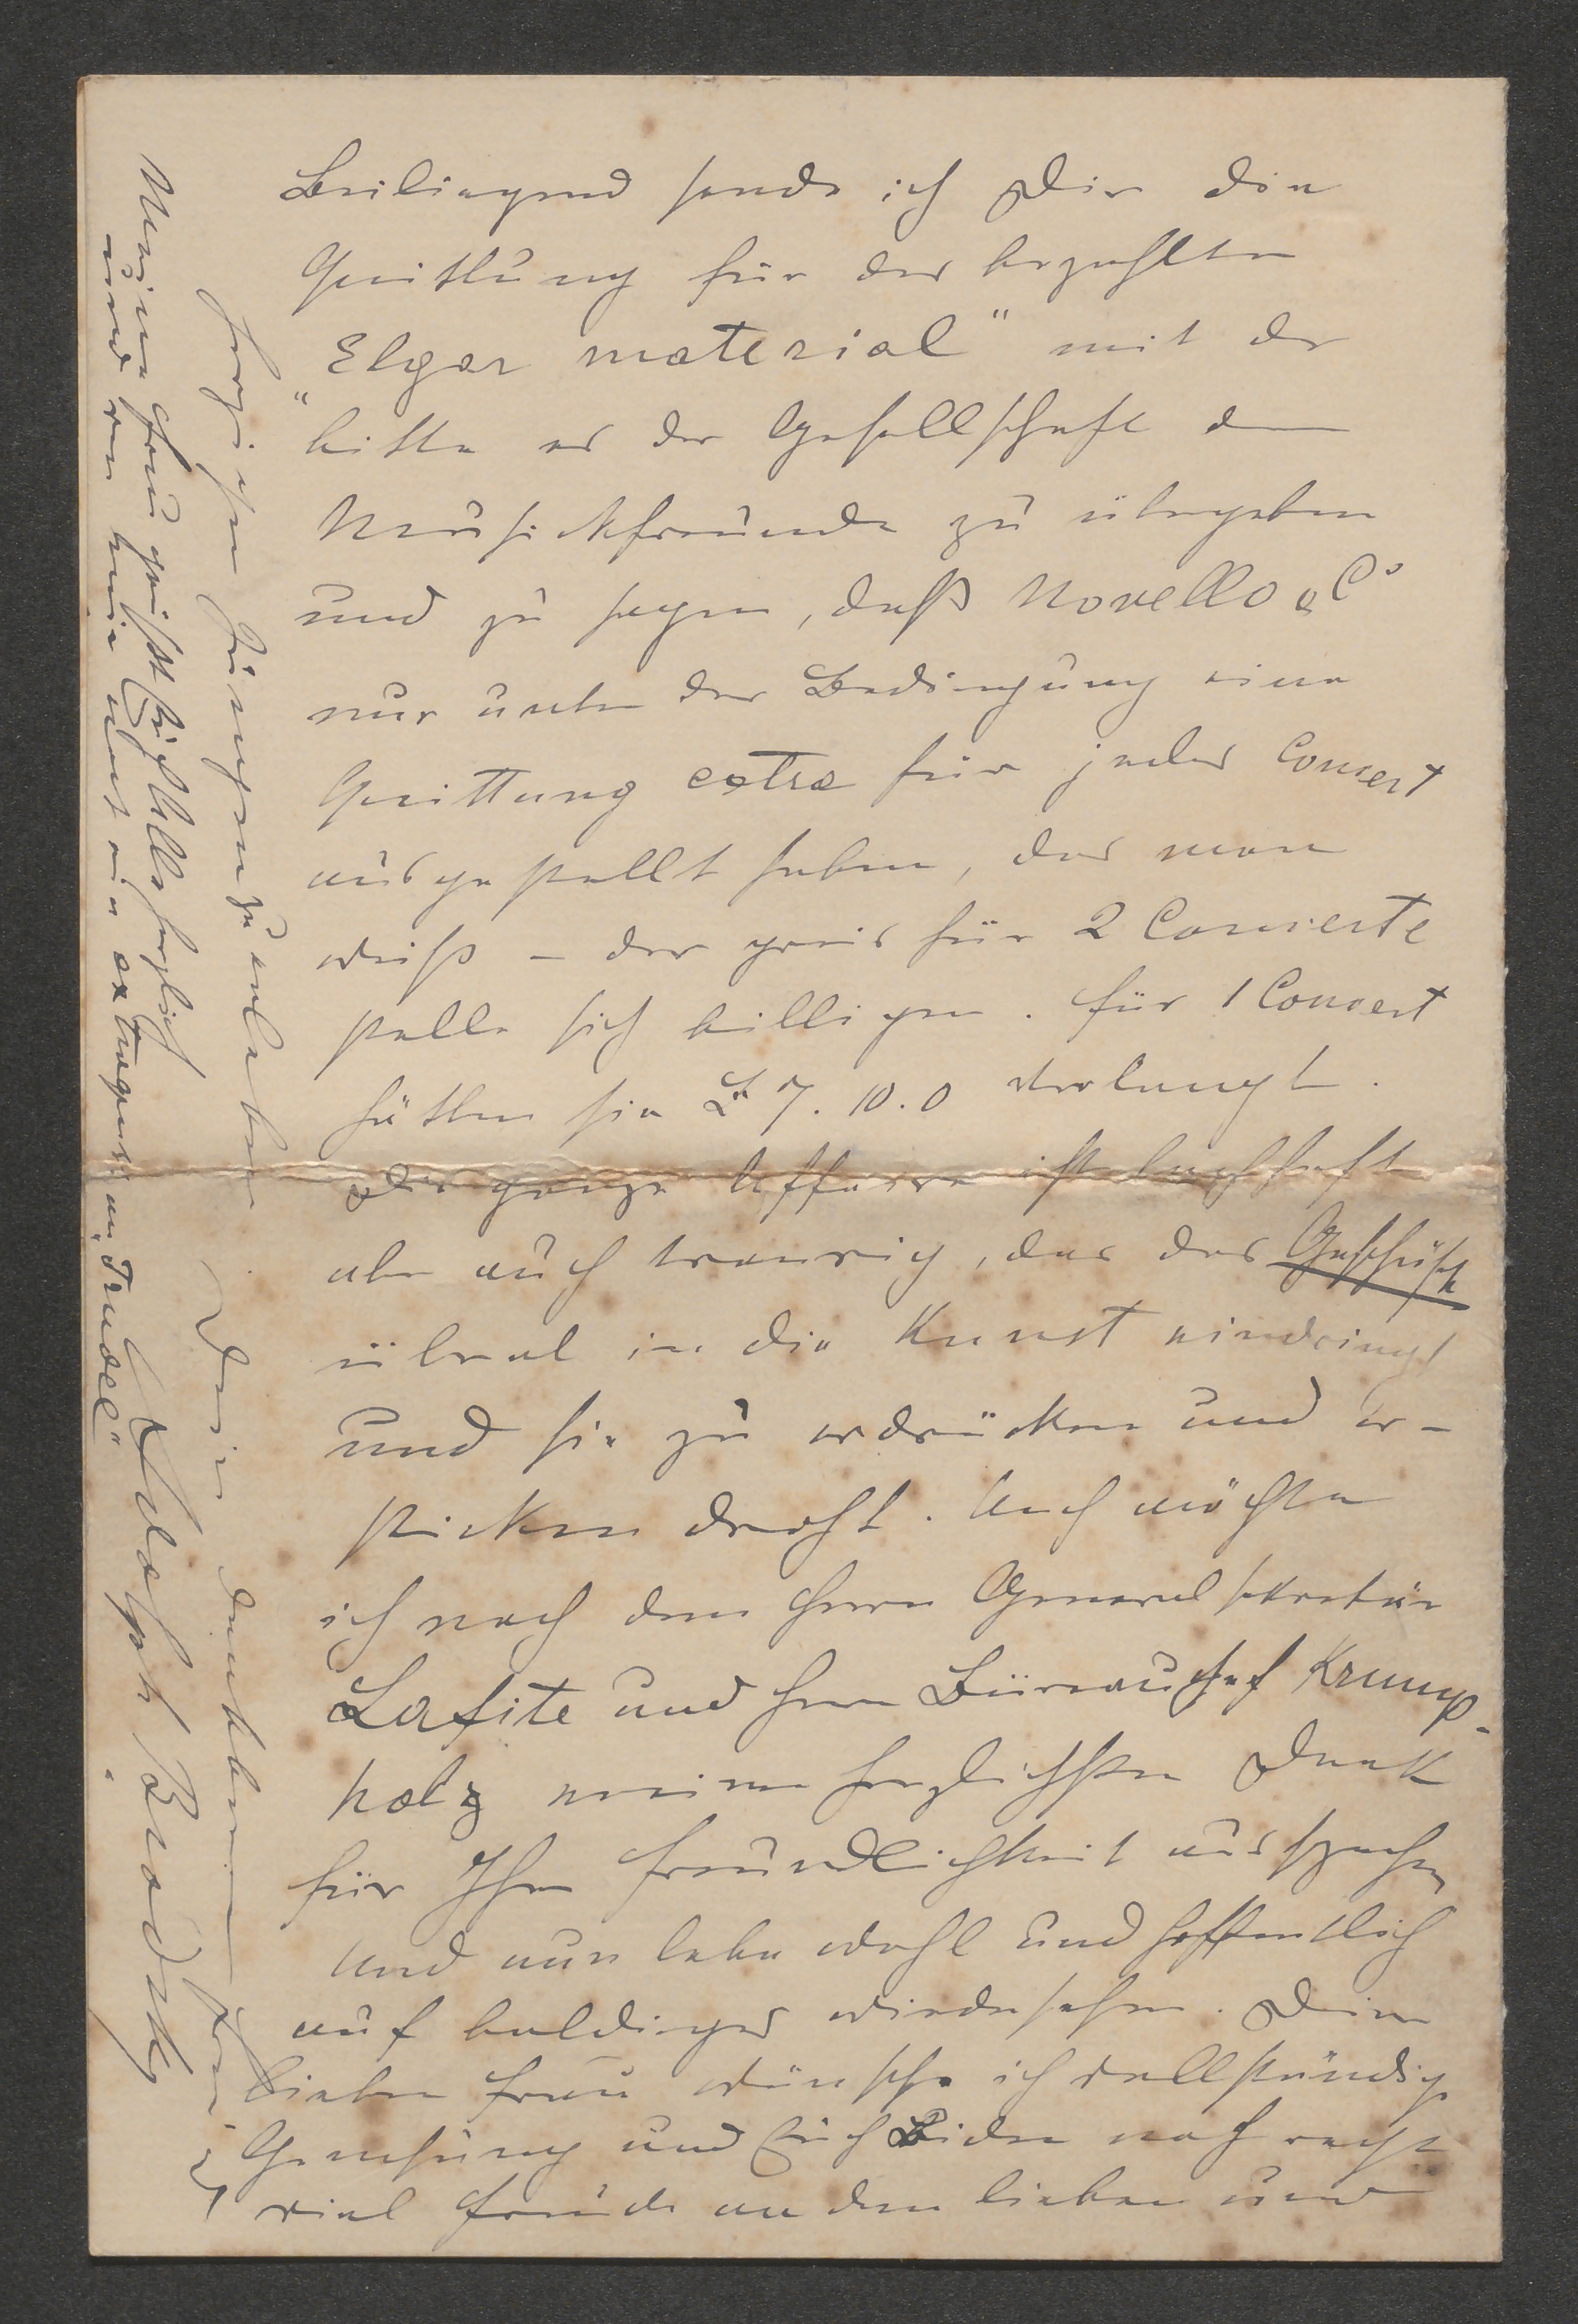 Beiliegend sende ich Dir die
Quittung für das bezahlte
„Elgar material" mit der
bitte es der Gesellschaft der
Musikfreunde zu übergeben
und zu sagen, daß Novello & Cº
nur unter der Bedingung eine
Quittung extra für jedes Concert
ausgestellt haben, das man
weiß – der preis für 2 Concerte
stelle sich billiger. für 1 Concert
hätten sie £ 7.10.0 verlangt.
Die ganze Affaire ist lachhaft
aber auch traurig, das das Geschäft
überal in die Kunst eindringt
und sie zu erdrücken und er-
sticken droht. Auch möchte
ich noch dem Herrn Generalsekretär
Lafite und Herrn Büreauchef Krump-
holz meinen herzlichsten Dank
für Ihre Freundlichkeit aussprechen
Und nun lebe wohl und hoffentlich
auf baldiges wiedersehen. Deiner
lieben Frau wünsche ich vollständige
Genesung und Euch Beiden noch recht
viel Freude an dem lieben und
herzigen Jungen zu erleben
Dein dankbarer Freund
Adolph Brodsky
Meine Frau grüßt Euch Alle herzlich
und von mir noch ein extragruss an „Trudel"